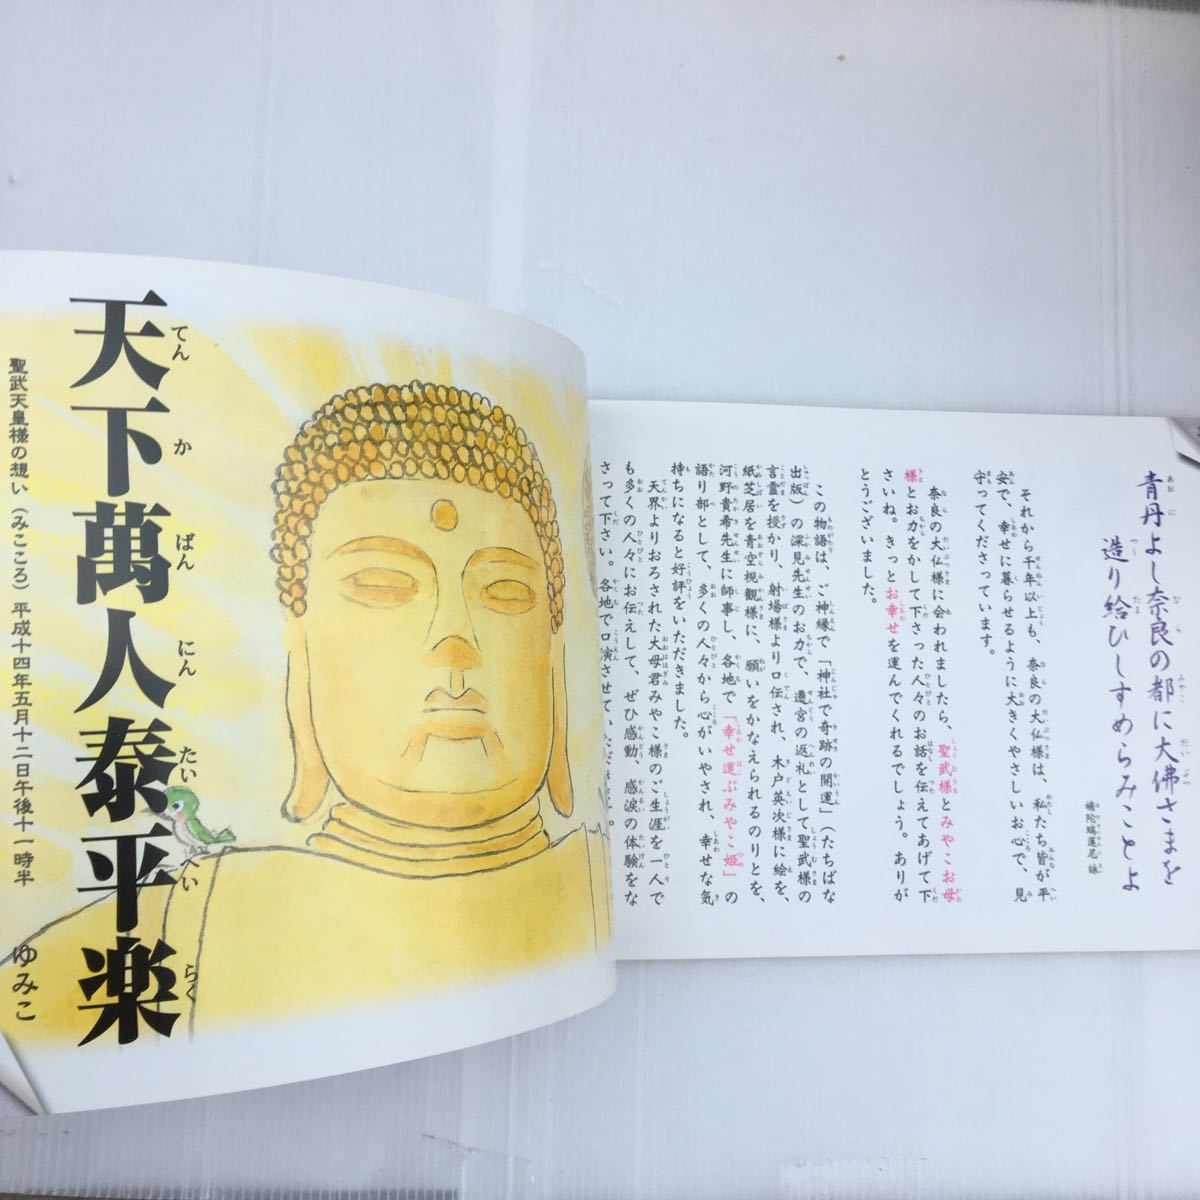 青丹よし奈良の都に大佛さまを
造り給ひしすめらみことよ
それから千年以上も、奈良の大仏様は、私たち皆が平
安で、幸せに暮らせるように大きくやさしいお心で、見
守ってくださっています。
奈良の大仏様に会われましたら、聖武様とみやこお母
様とお力をかして下さった人々のお話を伝えてあげて下
さいね。きっとお幸せを運んでくれるでしょう。ありが
とうございました。
この物語は、ご神縁で「神社で奇跡の開運」（たちばな
出版）の深見先生のお力で、遷宮の返礼として聖武様の
言霊を授かり、射場様より口伝され、木戸英次様に絵を、
紙芝居を青空視観様に、願いをかなえられるのりとを、
河野貴希先生に師事し、各地で「幸せ運ぶみやこ姫」の
語り部として、多くの人々から心がいやされ、幸せな気
持ちになると好評をいただきました。
天界よりおろされた大母君みやこ様のご生涯を一人で
も多くの人々にお伝えして、ぜひ感動、感涙の体験をな
さって下さい。各地で口演させていただき
天下萬人泰平楽
てんかばんにんたいへいらく
聖武天皇様の想い（みこころ）平成十四年五月十二日午後十一時半
ゆみこ